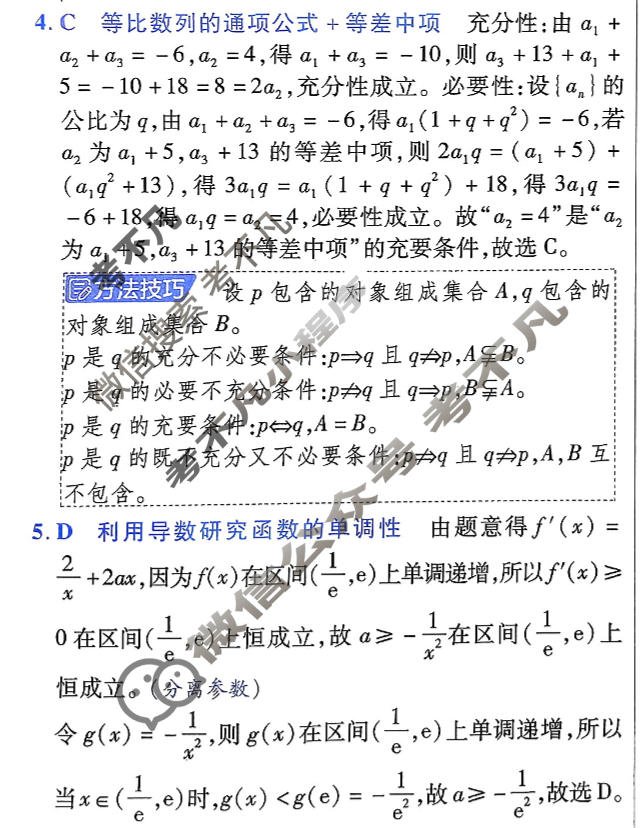 4. C 等比数列的通项公式+等差中项 充分性:由 a₁ +
a₂ + a₃ = -6, a₂ = 4,得 a₁ + a₃ = -10,则 a₃ + 13 + a₁ +
5 = -10 + 18 = 8 = 2a₂,充分性成立。必要性:设{aₙ}的
公比为 q,由 a₁ + a₂ + a₃ = -6,得 a₁(1 + q + q²) = -6,若
a₂ 为 a₁ + 5, a₃ + 13 的等差中项,则 2a₁q = (a₁ + 5) +
(a₁q² + 13),得 3a₁q = a₁(1 + q + q²) + 18,得 3a₁q =
-6 + 18,得 a₁q = a₂ = 4,必要性成立。故“a₂ = 4”是“a₂
为 a₁ + 5, a₃ + 13 的等差中项”的充要条件,故选 C。
方法技巧 设 p 包含的对象组成集合 A, q 包含的
对象组成集合 B。
p 是 q 的充分不必要条件:p⇒q 且 q⇏p, A⫋B。
p 是 q 的必要不充分条件:p⇏q 且 q⇒p, B⫋A。
p 是 q 的充要条件:p⇔q, A = B。
p 是 q 的既不充分又不必要条件:p⇏q 且 q⇏p, A, B 互
不包含。
5. D 利用导数研究函数的单调性 由题意得 f′(x) =
2/x + 2ax,因为 f(x)在区间(1/e, e)上单调递增,所以 f′(x) ≥
0 在区间(1/e, e)上恒成立,故 a ≥ -1/x² 在区间(1/e, e)上
恒成立。(分离参数)
令 g(x) = -1/x²,则 g(x)在区间(1/e, e)上单调递增,所以
当 x∈(1/e, e)时, g(x) < g(e) = -1/e²,故 a ≥ -1/e²,故选 D。
考不凡
微信搜索 考不凡
考不凡小程序
微信公众号 考不凡